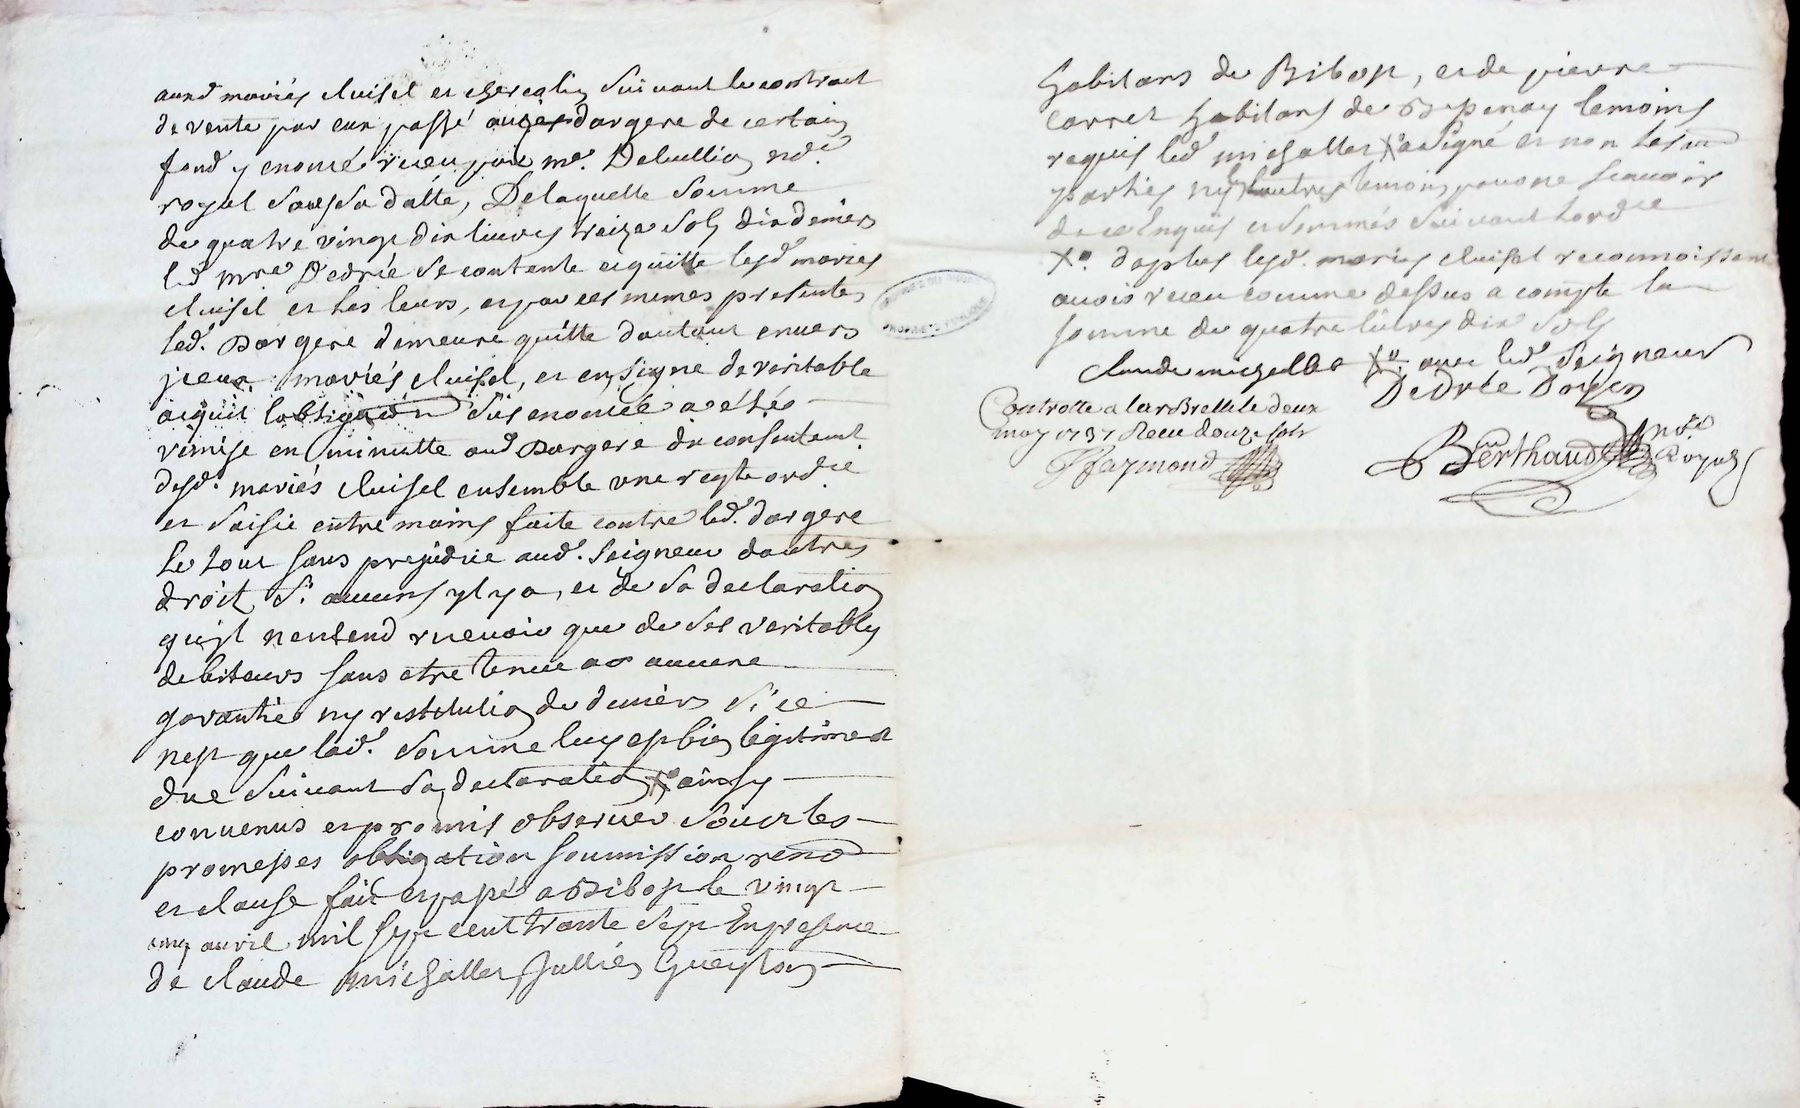 auxd mariés cluisel et chevalin suivant le contract
de vente par eux passé aud dargere de certain
fond y enoncé receu par me. Debullion not.re
royal sous sa datte, De laquelle somme
de quatre vingt dix livres treize sols dix deniers
led mre Dedrée se contente et quitte lesd maries
cluisel et les leurs, et par ces memes presentes
led. Dargere demeure quitte dautant envers
iceux mariés cluisel, et en signe de veritable
acquit lobligation sus enoncée a etée
remise en minutte aud Dargere du consentemt
desd. mariés cluisel ensemble une reqte ordce
et saisie entre mains faite contre led. dargere
le tout sans prejudice aud. seigneur dautres
droit si aucuns yl y a, et de sa declaration
quil nentend recevoir que de ses veritables
debiteurs sans etre tenu a aucune
garantie ny restitution de deniers si ce
nest que lad. somme luy est bien legitimemt
due suivant sa declaration X ainsy
convenus et promis observer sous les
promesses obligation soumission renon
et clause fait et passé a Bibost le vingt
cinq avril mil sept cent trante sept En presence
de claude michallet, Jullien Gueyton
habitans de Bibost, et de pierre
carret habitans de Bessenay temoins
requis led michallet X a signé et non les
parties ny lautres temoins pour ne scavoir
de ce Enquis et sommés suivant lordce
X. daplus lesd. maries cluisel reconnoissent
avoir receu comme dessus a compte la
somme de quatre livres dix sols
claude michallet X avec led seigneur
Dedrée Doyen
Controllé a larBrelle le deux
may 1737 Receu douze sols
Raymond
Berthaud no.re
Royal